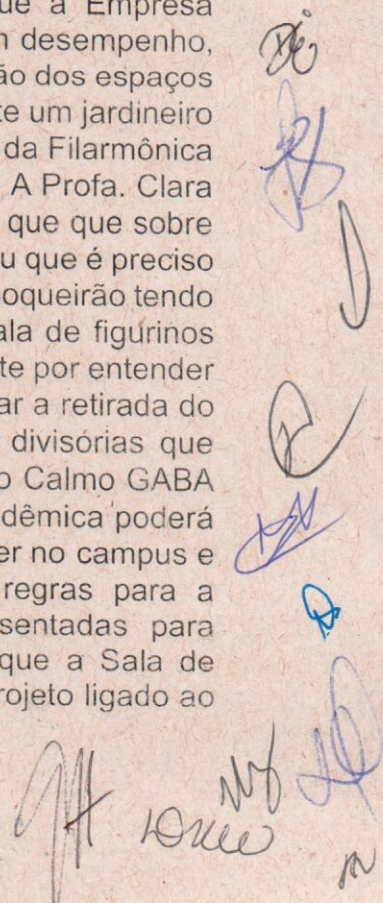 que a Empresa
desempenho,
dos espaços
te um jardineiro
da Filarmônica
A Profa. Clara
que que sobre
u que é preciso
oqueirão tendo
ala de figurinos
te por entender
ar a retirada do
divisórias que
o Calmo GABA
dêmica poderá
er no campus e
regras para a
sentadas para
que a Sala de
rojeto ligado ao